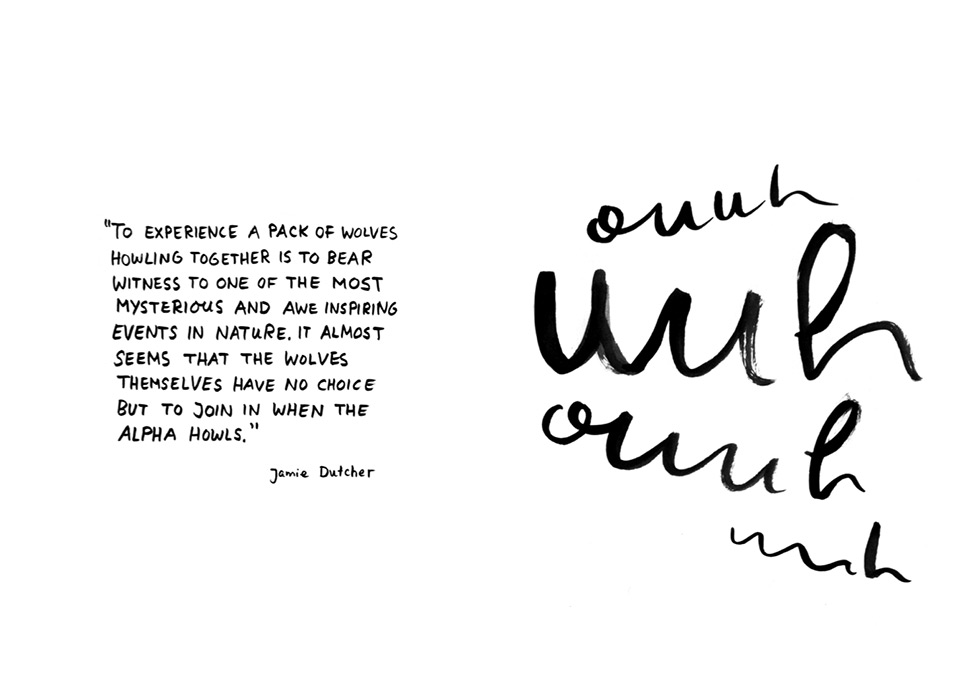 "To EXPERIENCE A PACK OF WOLVES
HOWLING TOGETHER IS TO BEAR
WITNESS TO ONE OF THE MOST
MYSTERIOUS AND AWE INSPIRING
EVENTS IN NATURE. IT ALMOST
SEEMS THAT THE WOLVES
THEMSELVES HAVE NO CHOICE
BUT TO JOIN IN WHEN THE
ALPHA HOWLS."
Jamie Dutcher
ouuuh
uuuh
ouuuh
uuuh